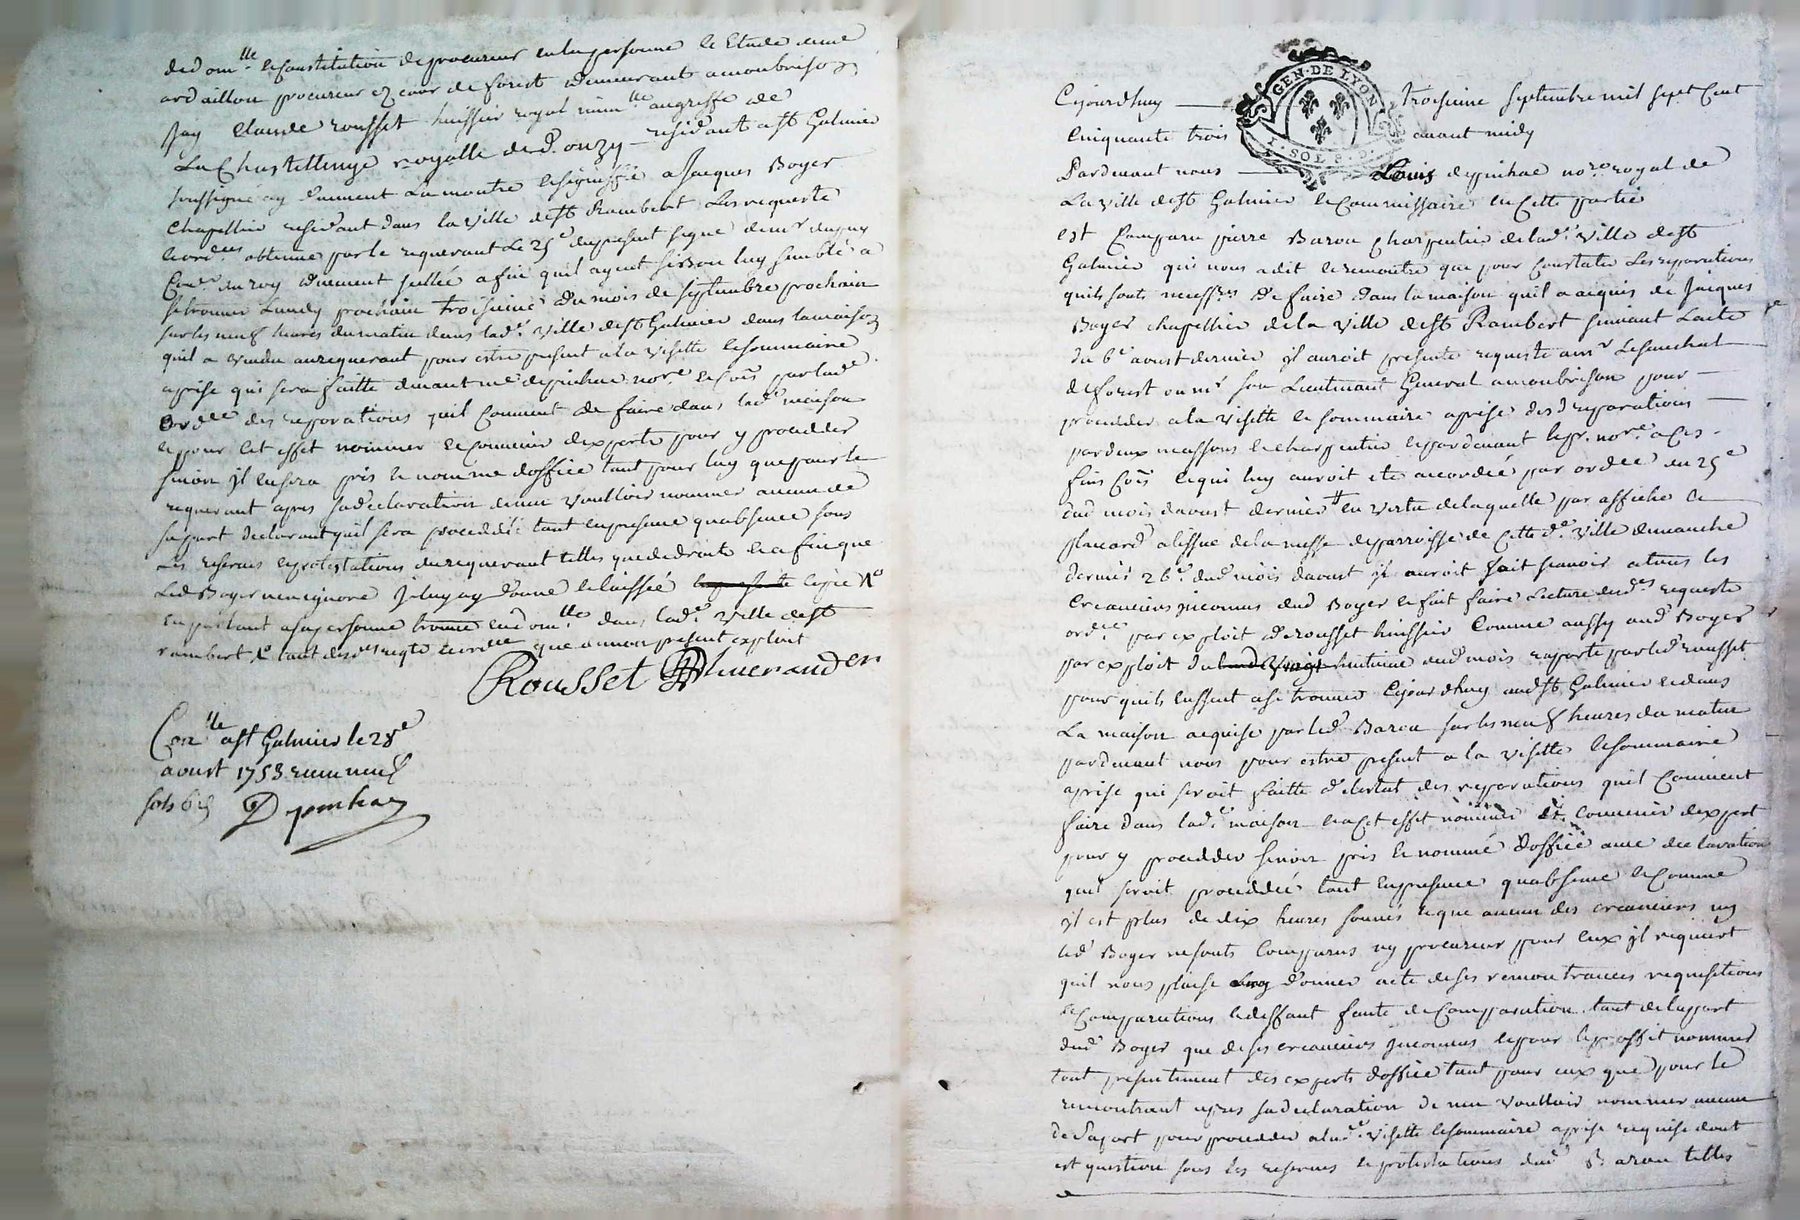 ded om.lle et constitution de procureur en la personne et Etude de me
ardaillon procureur ez cour de forest demeurant a monbrison
Jay Claude rousset huissier royal imm.lle au greffe de
La Chastellenye royalle de d'onzy residant a st Galmier
soussigné ay duement La montre et signiffié a Jacques Boyer
Chapellier residant dans la ville de st Rambert Les requeste
et ord.ces obtenue par le requerant Le 25e du present signé de mr dupuy
Con.er du roy duement sellée afin quil ayent si bon luy semble a
se trouver Lundy prochain troisieme du mois de septembre prochain
sur les neuf heures du matin dans lad.e ville de st Galmier dans la maison
quil a vendu au requerant pour estre present a la visitte et sommaire
aprise qui sera faitte devant me depinhac nore et Cōis par lad.e
ord.ce des repparations quil convient de faire dans lad.e maison
et pour cet effet nommer et convenir d'experts pour y proceder
sinon il en sera pris et nommé d'office tant pour luy que pour le
requerant apres sa declaration de nen voulloir nommer aucun de
sa part declarant quil sera proceddé tant en presence qu'absence sous
Les reserves et protestations du requerant telles que de droit et afin que
Led Boyer nen ignore Je luy ay donné et laissée copie
en parlant a sa personne trouvé en d om.lle dans lad.e ville de st
rambert tant desd.es reqte et ord.ce que de mon present exploit
Rousset
Con.lle a st Galmier le 28e
aoust 1753 receu neuf
sols 6 d Depinhac
GEN·DE LYON
1·SOL 8·D
Cejourdhuy troisieme septembre mil sept Cent
Cinquante trois avant midy
Pardevant nous Louis depinhac no.re royal de
La ville de st Galmier et Commissaire en Cette partie
est Comparu pierre Barou charpentier de lad.e ville de st
Galmier qui nous a dit et remontré que pour Constater Les reparations
quils sont necess.res de faire dans la maison quil a acquis de Jacques
Boyer chapellier de la ville de st Rambert suivant Lacte
du 6e aoust dernier il auroit presenté requeste a mr Le senechal
de forest ou mr son Lieutenant General a monbrison pour
proceder a la visitte et sommaire aprise desd reparations
par deux massons et charpentier et pardevant le sr. nore a ces
fins Cōis ce qui luy auroit ete accordée par ord.ce du 25e
dud mois daoust dernier en vertu de laquelle par affiche et
placard a lissue de la messe de parroisse de Cette d.e ville dimanche
dernier 26e dud mois daoust il auroit fait scavoir a tous les
creanciers inconnus dud Boyer et fait faire Lecture desd.es requeste
ord.ce par exploit de rousset huissier Comme aussy aud Boyer
par exploit du vingt huitieme dud mois raporté par led rousset
pour quils eussent a se trouver Cejourdhuy aud st Galmier et dans
La maison acquise par led Barou sur les neuf heures du matin
pardevant nous pour estre present a la visitte et sommaire
aprise qui seroit faitte de letat des repparations quil Convient
faire dans lad.e maison et a cet effet nommer et convenir d'expert
pour y procedder sinon pris et nommé doffice avec declaration
quil seroit proceddée tant en presence qu'absence et Comme
il est plus de dix heures sonnés et que aucun des creanciers ny
led Boyer ne sonts Comparus ny procureur pour eux il requiert
quil nous plaise luy donner acte de ses remontrances requisitions
et Comparutions et deffaut faute de Comparution tant de la part
dud Boyer que de ses creanciers inconnus et pour le proffit nommer
tout presentement des experts doffice tant pour eux que pour le
remontrant apres sa declaration de nen voulloir nommer aucun
de sa part pour procedder a lad.e visitte et sommaire aprise requise dont
est question sous les reserves et protestations dud Barou telles